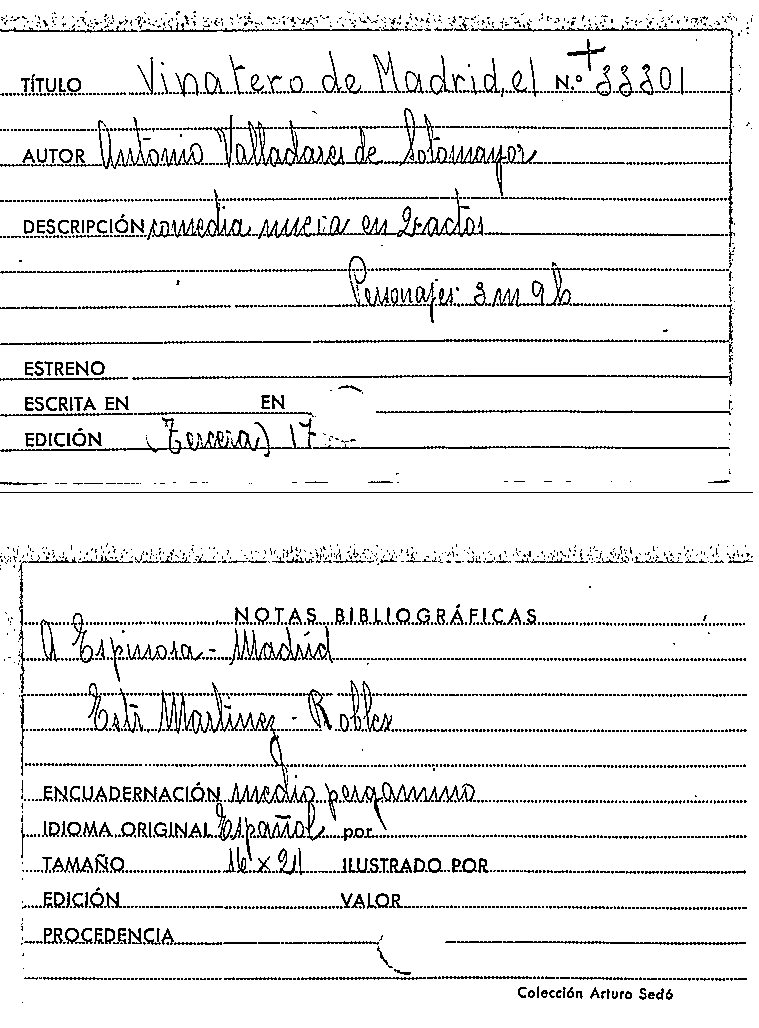 TÍTULO Vinatero de Madrid, el N.º + 33301
AUTOR Antonio Valladares de Sotomayor
DESCRIPCIÓN comedia nueva en 2 actos
Personajes: 3 m 9 h
ESTRENO
ESCRITA EN EN
EDICIÓN (Tercera) 17
NOTAS BIBLIOGRÁFICAS
A Espinosa - Madrid
Martinez - Robles
ENCUADERNACIÓN medio pergamino
IDIOMA ORIGINAL Español por
TAMAÑO 16 x 21 ILUSTRADO POR
EDICIÓN VALOR
PROCEDENCIA
Colección Arturo Sedó